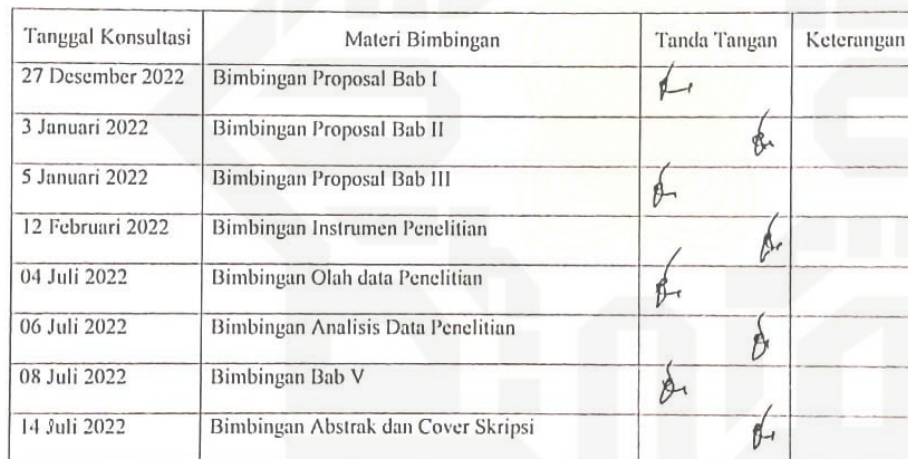 Tanggal Konsultasi Materi Bimbingan Tanda Tangan Keterangan
27 Desember 2022 Bimbingan Proposal Bab I
3 Januari 2022 Bimbingan Proposal Bab II
5 Januari 2022 Bimbingan Proposal Bab III
12 Februari 2022 Bimbingan Instrumen Penelitian
04 Juli 2022 Bimbingan Olah data Penelitian
06 Juli 2022 Bimbingan Analisis Data Penelitian
08 Juli 2022 Bimbingan Bab V
14 Juli 2022 Bimbingan Abstrak dan Cover Skripsi